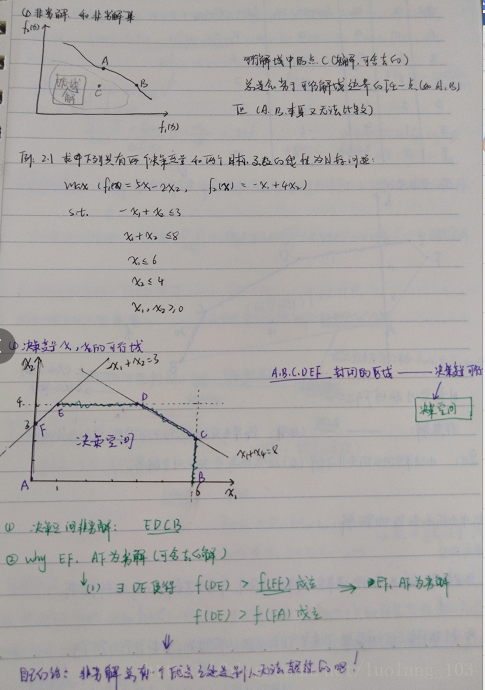 (1) 非劣解 和非劣解集
f₂(x)
A
B
C
可行域
f₁(x)
可行解域中的点C(劣解,可舍去的)
总是劣于可行解域边界的某一点(如A,B)
(A,B本身又无法比较)
例: 2.1 求下列具有两个决策变量和两个目标函数的线性多目标问题:
max (f₁(x)=5x₁-2x₂, f₂(x)=-x₁+4x₂)
s.t. -x₁+x₂≤3
x₁+x₂≤8
x₁≤6
x₂≤4
x₁,x₂≥0
① 决策变量x₁,x₂的可行域
x₂
-x₁+x₂=3
4
3
E
D
F
C
决策空间
x₁+x₂=8
A
1
B
6
x₁
A.B.C.D.E.F 封闭的区域 —— 决策变量可行
决策空间
① 决策空间非劣解: EDCB
② Why EF, AF为劣解(可舍去的解)
(1) ∃ DE使得 f(DE) > f(EF) 成立 → EF, AF为劣解
f(DE) > f(FA) 成立
自己的话: 非劣解总有一个优点之处是别人无法超越的吧!
luolang_103